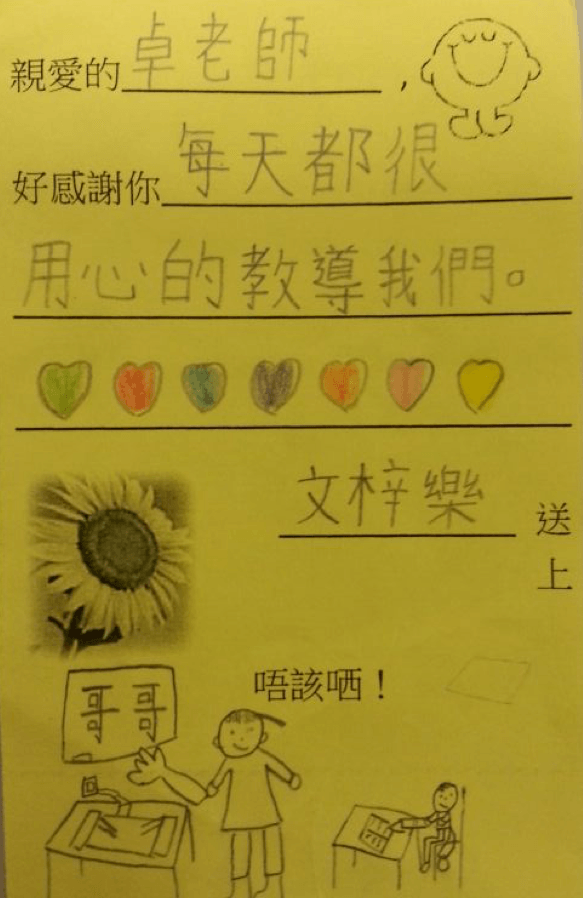 親愛的卓老師，
好感謝你每天都很
用心的教導我們。
文梓樂 送
上
唔該哂！
哥哥